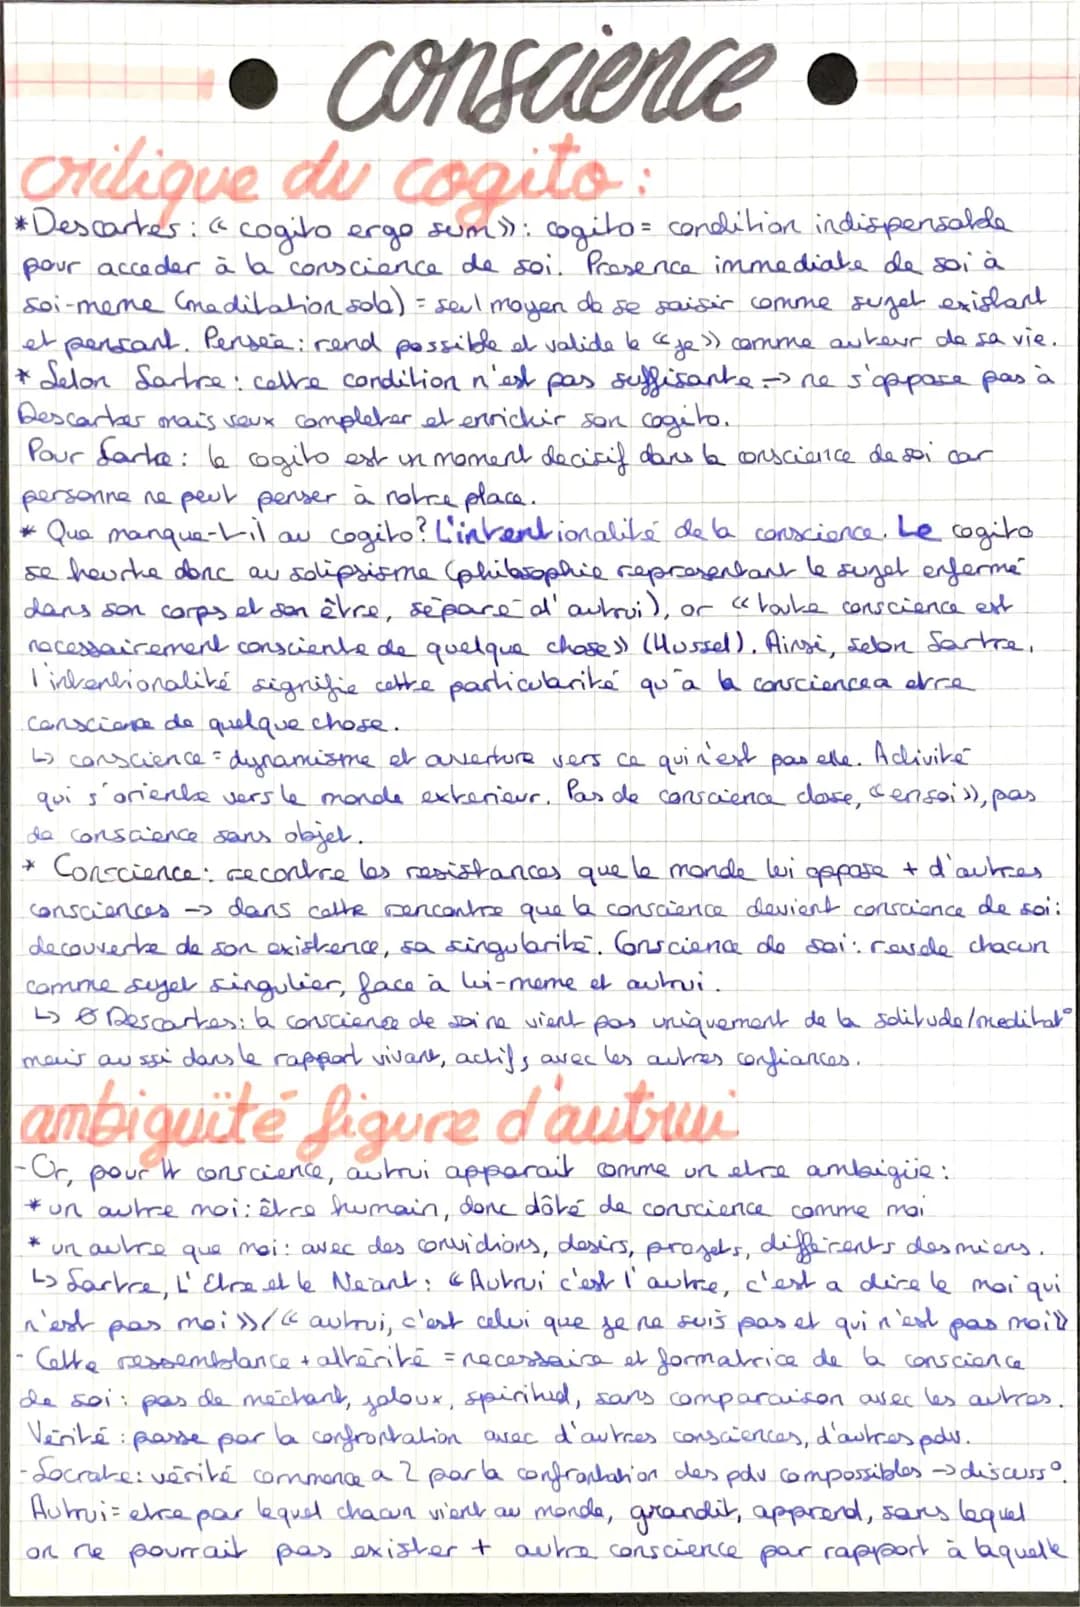 conscience
critique du cogito :
*Descartes : « cogito ergo sum » : cogito = condition indispensable
pour acceder à la conscience de soi. Presence immediate de soi à
soi-meme (meditation solo) = seul moyen de se saisir comme sujet existant
et pensant. Pensée : rend possible et valide le « je » comme auteur de sa vie.
* Selon Sartre : cette condition n'est pas suffisante -> ne s'oppose pas à
Descartes mais veux completer et enrichir son cogito.
Pour Sartre : le cogito est un moment decisif dans la conscience de soi car
personne ne peut penser à notre place.
* Que manque-t-il au cogito ? L'intentionalité de la conscience. Le cogito
se heurte donc au solipsisme (philosophie representant le sujet enfermé
dans son corps et son être, séparé d'autrui), or « toute conscience est
necessairement consciente de quelque chose » (Hussel). Ainsi, selon Sartre,
l'intentionalité signifie cette particularité qu'à la conscience a etre
conscience de quelque chose.
↳ conscience = dynamisme et ouverture vers ce qui n'est pas elle. Activité
qui s'oriente vers le monde exterieur. Pas de conscience close, « en soi », pas
de conscience sans objet.
* Conscience : recontre les resistances que le monde lui oppose + d'autres
consciences -> dans cette rencontre que la conscience devient conscience de soi :
decouverte de son existence, sa singularité. Conscience de soi : revele chacun
comme sujet singulier, face à lui-meme et autrui.
↳ Descartes : la conscience de soi ne vient pas uniquement de la solitude/meditat°
mais aussi dans le rapport vivant, actif, avec les autres confiances.
ambiguïté figure d'autrui
-Or, pour tt conscience, autrui apparait comme un etre ambigüe :
* un autre moi : être humain, donc dôté de conscience comme moi
* un autre que moi : avec des convictions, desirs, projets, différents des miens.
↳ Sartre, L'Etre et le Néant : « Autrui c'est l'autre, c'est a dire le moi qui
n'est pas moi » / « autrui, c'est celui que je ne suis pas et qui n'est pas moi »
- Cette ressemblance + altérité = necessaire et formatrice de la conscience
de soi : pas de méchant, jaloux, spirituel, sans comparaison avec les autres.
Vérité : passe par la confrontation avec d'autres consciences, d'autres pdv.
-Socrate : vérité commence a 2 par la confrontation des pdv compossibles -> discuss°.
Autrui = etre par lequel chacun vient au monde, grandit, apprend, sans lequel
on ne pourrait pas exister + autre conscience par rapport à laquelle